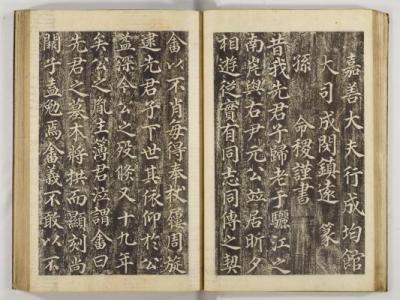 嘉善大夫行成均館
大司成閔鎭遠篆
孫命稷謹書
昔我先君子歸老于驪江之
南岸與右尹元公竝居昕夕
相遊從實有同志同傳之契
畬以不肖每得奉杖屨周旋
逮先君子下世其依仰於公
益深今公之歿倐又十九年
矣公之胤主簿君泣謂畬曰
先君之墓木將拱而顯刻尚
闕子盍勉焉畬義不敢以不